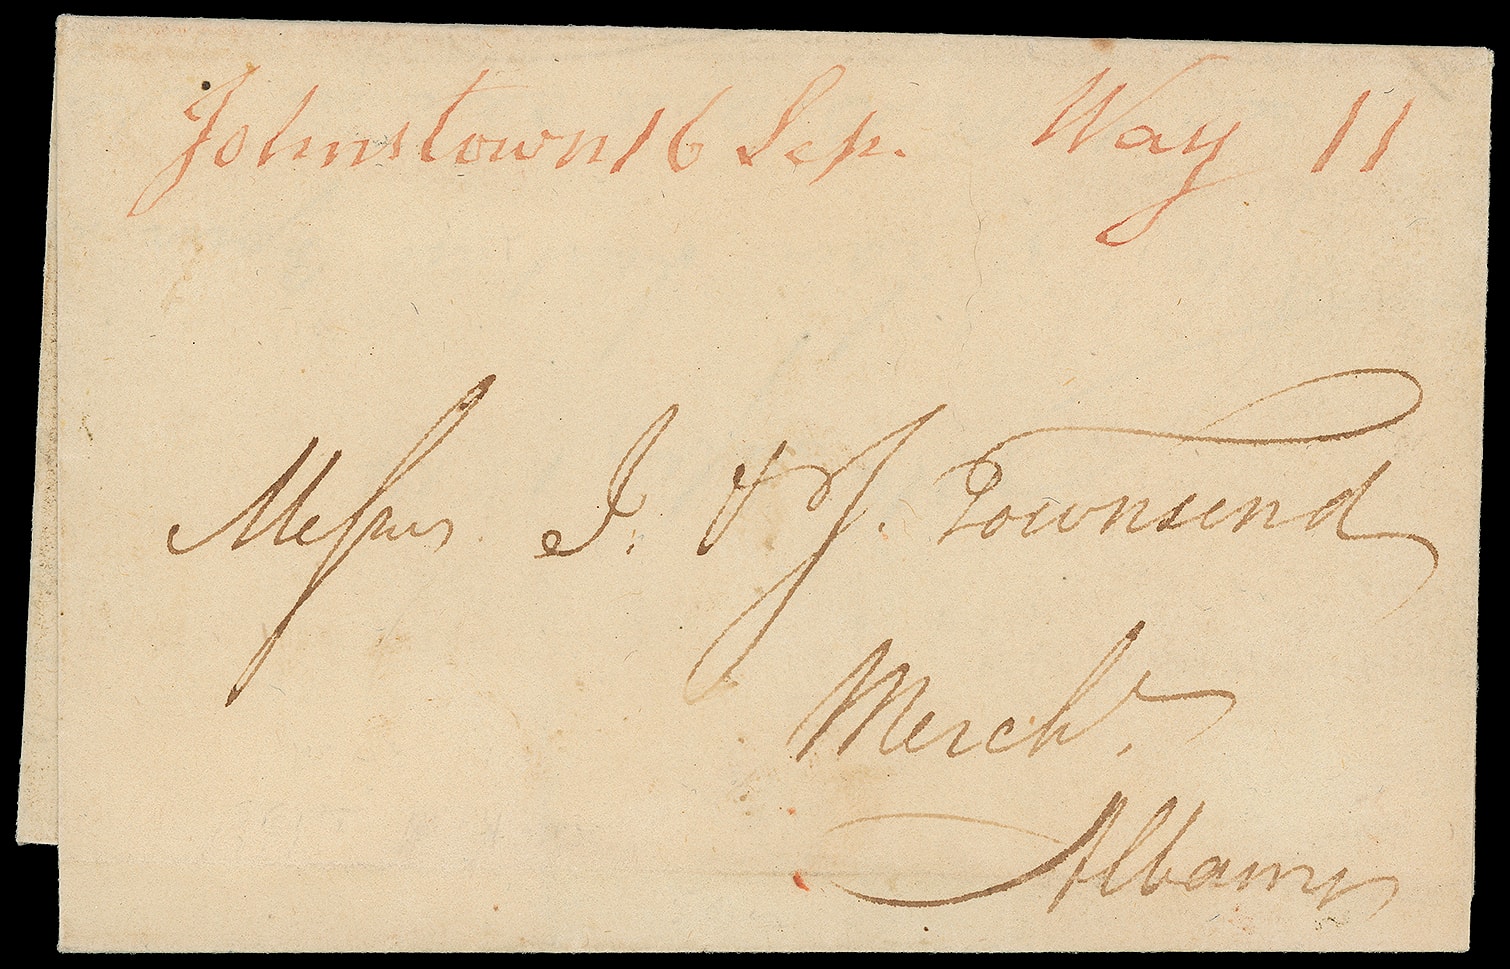 Johnstown 16 Sep. Way 11
Messrs I. & J. Townsend
Mercht.
Albany